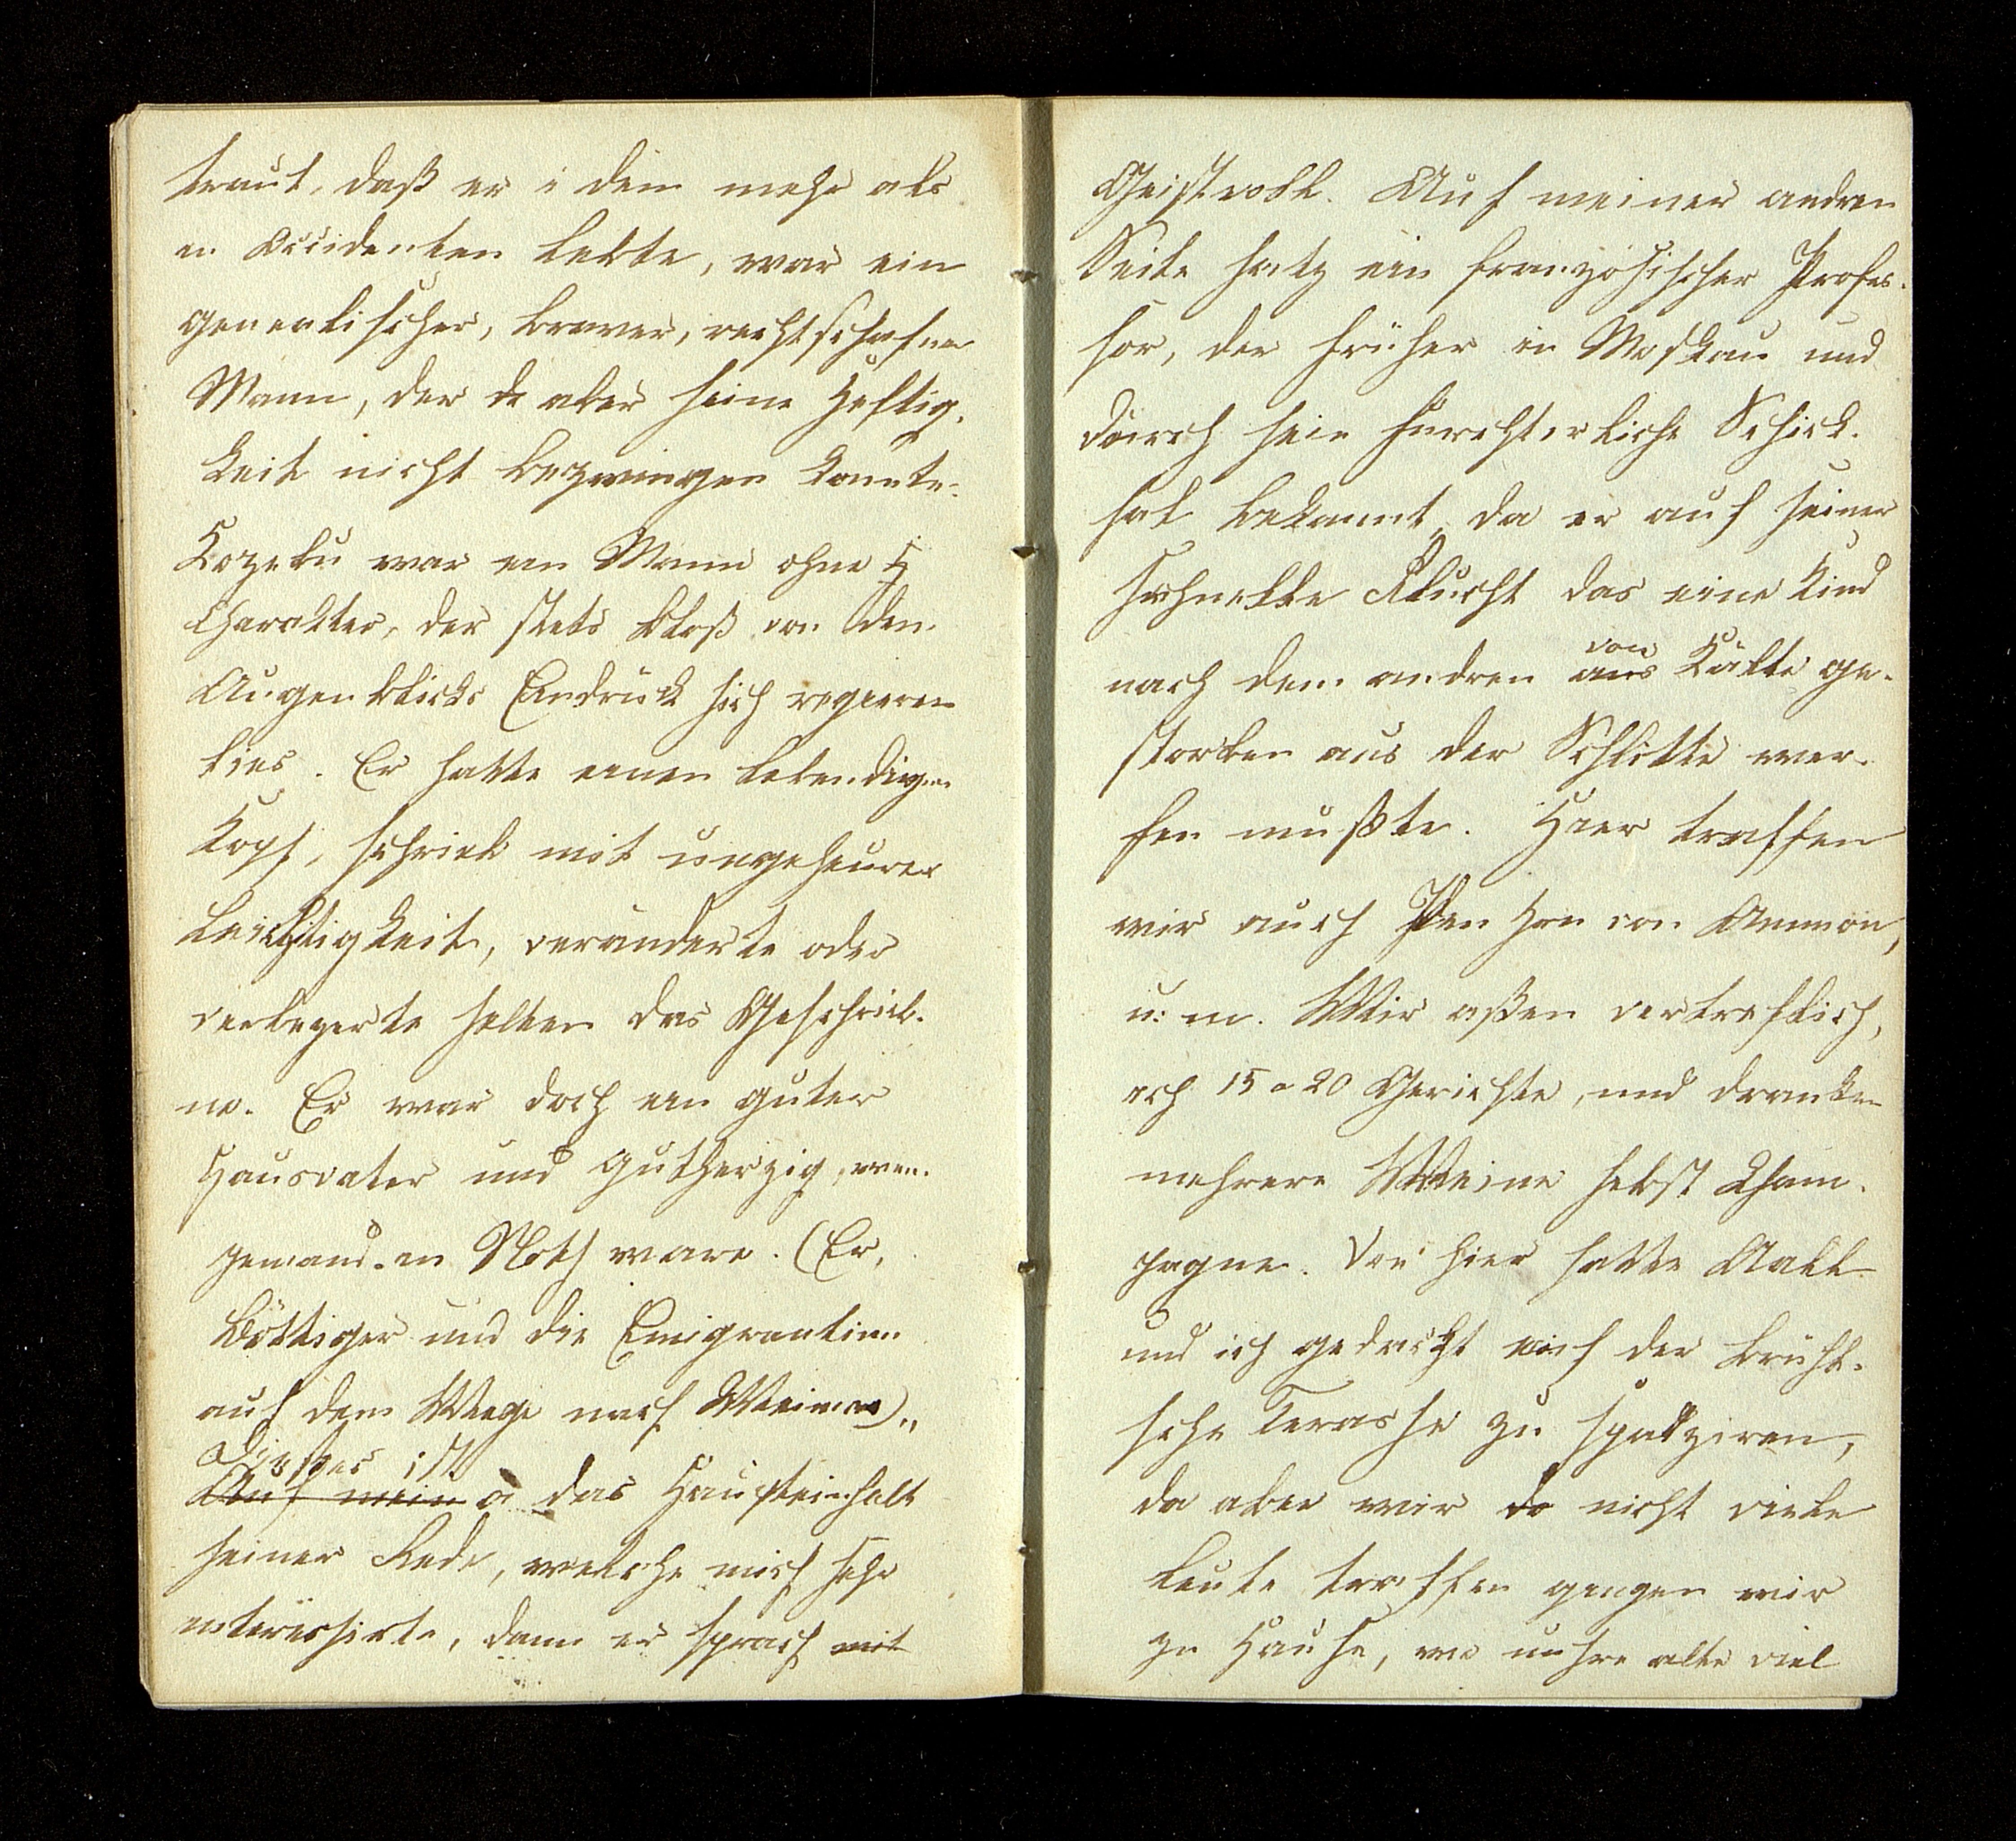 traut, daß er i dem mehr als
in Occidenten lebte, war ein
genealischer, braver, rechtschafner
Mann, der da aber seine Heftig¬
keit nicht bezwingen konnte.
Kozebu war ein Mann ohne H
Charakter, der stets bloß von den
Augenblicks Eindruck sich regieren
lies. Er hatte einen lebendigen
Kopf, schrieb mit ungeheurer
Leichtigkeit, veränderte oder
verbeßerte selten das Geschrieb¬
ne. Er war doch ein guter
Hausvater und gutherzig, wen
jemand in Noth ware. (Er,
Böttiger und die Emigrantinn
auf dem Wege nach Weimar)„
Dieses ist
Auf mein a das Haupteinhalt
seiner Rede, welche mich sehr
interessirte, dann er sprach mit
Geistvoll. Auf meiner andren
Seite satz ein französischer Profes¬
sor, der früher in Moskau und
durch sein furchterliche Schick¬
sal bekannt, da er auf seiner
schnelle Flucht das eine Kind
von
nach dem andren aus Kälte ge¬
storben aus der Schlitte wer¬
fen mußte. Hier traffen
wir auch den Hrn von Ammon,
u: m. Wir aßen vortreflich,
ach 15 a 20 Gerichte, und dranken
mehrere Weine selbst Cham¬
pagne. Von hier hatte Aall
und ich gedacht auf der Brühl¬
sche Terasse zu spatziren,
da aber wir da nicht viele
Leute traffen gengen wir
zu Hause, wo unsre alte viel